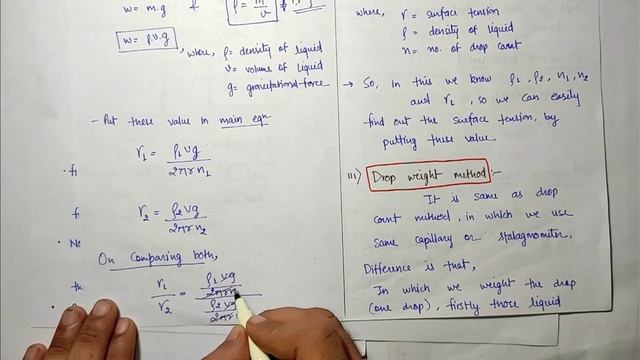 w = m.g & ρ = m/v
w = ρ.v.g
where, ρ = density of liquid
v = volume of liquid
g = gravitational force
- Put these value in main eqn
r₁ = ρ₁vg / 2πrn₁
r₂ = ρ₂vg / 2πrn₂
On comparing both,
r₁/r₂ = ρ₁vg / 2πrn₁ / ρ₂vg / 2πr
where, r = surface tension
ρ = density of liquid
n = no. of drop count
→ So, in this we know ρ₁, ρ₂, n₁, n₂
and r₁, so we can easily
find out the surface tension, by
putting these value
iii) Drop weight method :-
It is same as drop
count method, in which we use
same capillary or stalagmometer.
Difference is that,
In which we weight the drop
(one drop), firstly those liquid